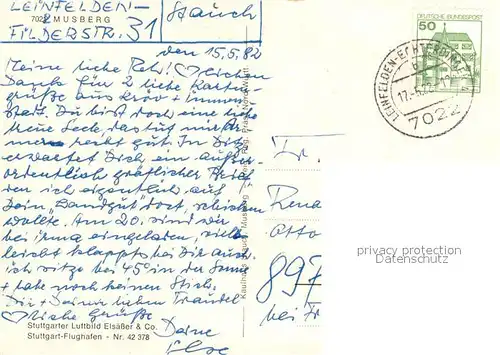 LEINFELDEN-
7022 MUSBERG
FILDERSTR. 31
Stauch
den 15.5.82
Meine liebe Rehi! Herzlichen
Dank für 2 liebe Karten-
grüße aus Kröv + Immen-
staad. Du bist doch eine
treue Seele, das tut mir
recht gut. In
erwartet Dich ein außer-
ordentlich
ich eigentlich auf
Dein "Landgut" dort schicken
wollte. Am 20. sind wir
bei Irma eingeladen, viel-
leicht klappts bei Dir auch.
ich sitze bei 45° in der Sonne
+ habe noch keinen Stich.
Dir + Deinem lieben Traudel
liebe Grüße
Deine
Stuttgarter Luftbild Elsäßer & Co.
Stuttgart-Flughafen - Nr. 42 378
Kaufhaus Stauch, Musberg
DEUTSCHE BUNDESPOST
50
LEINFELDEN-ECHTERDINGEN
b
7022
Fr.
Rena
Otto
897
bei
privacy protection
Datenschutz